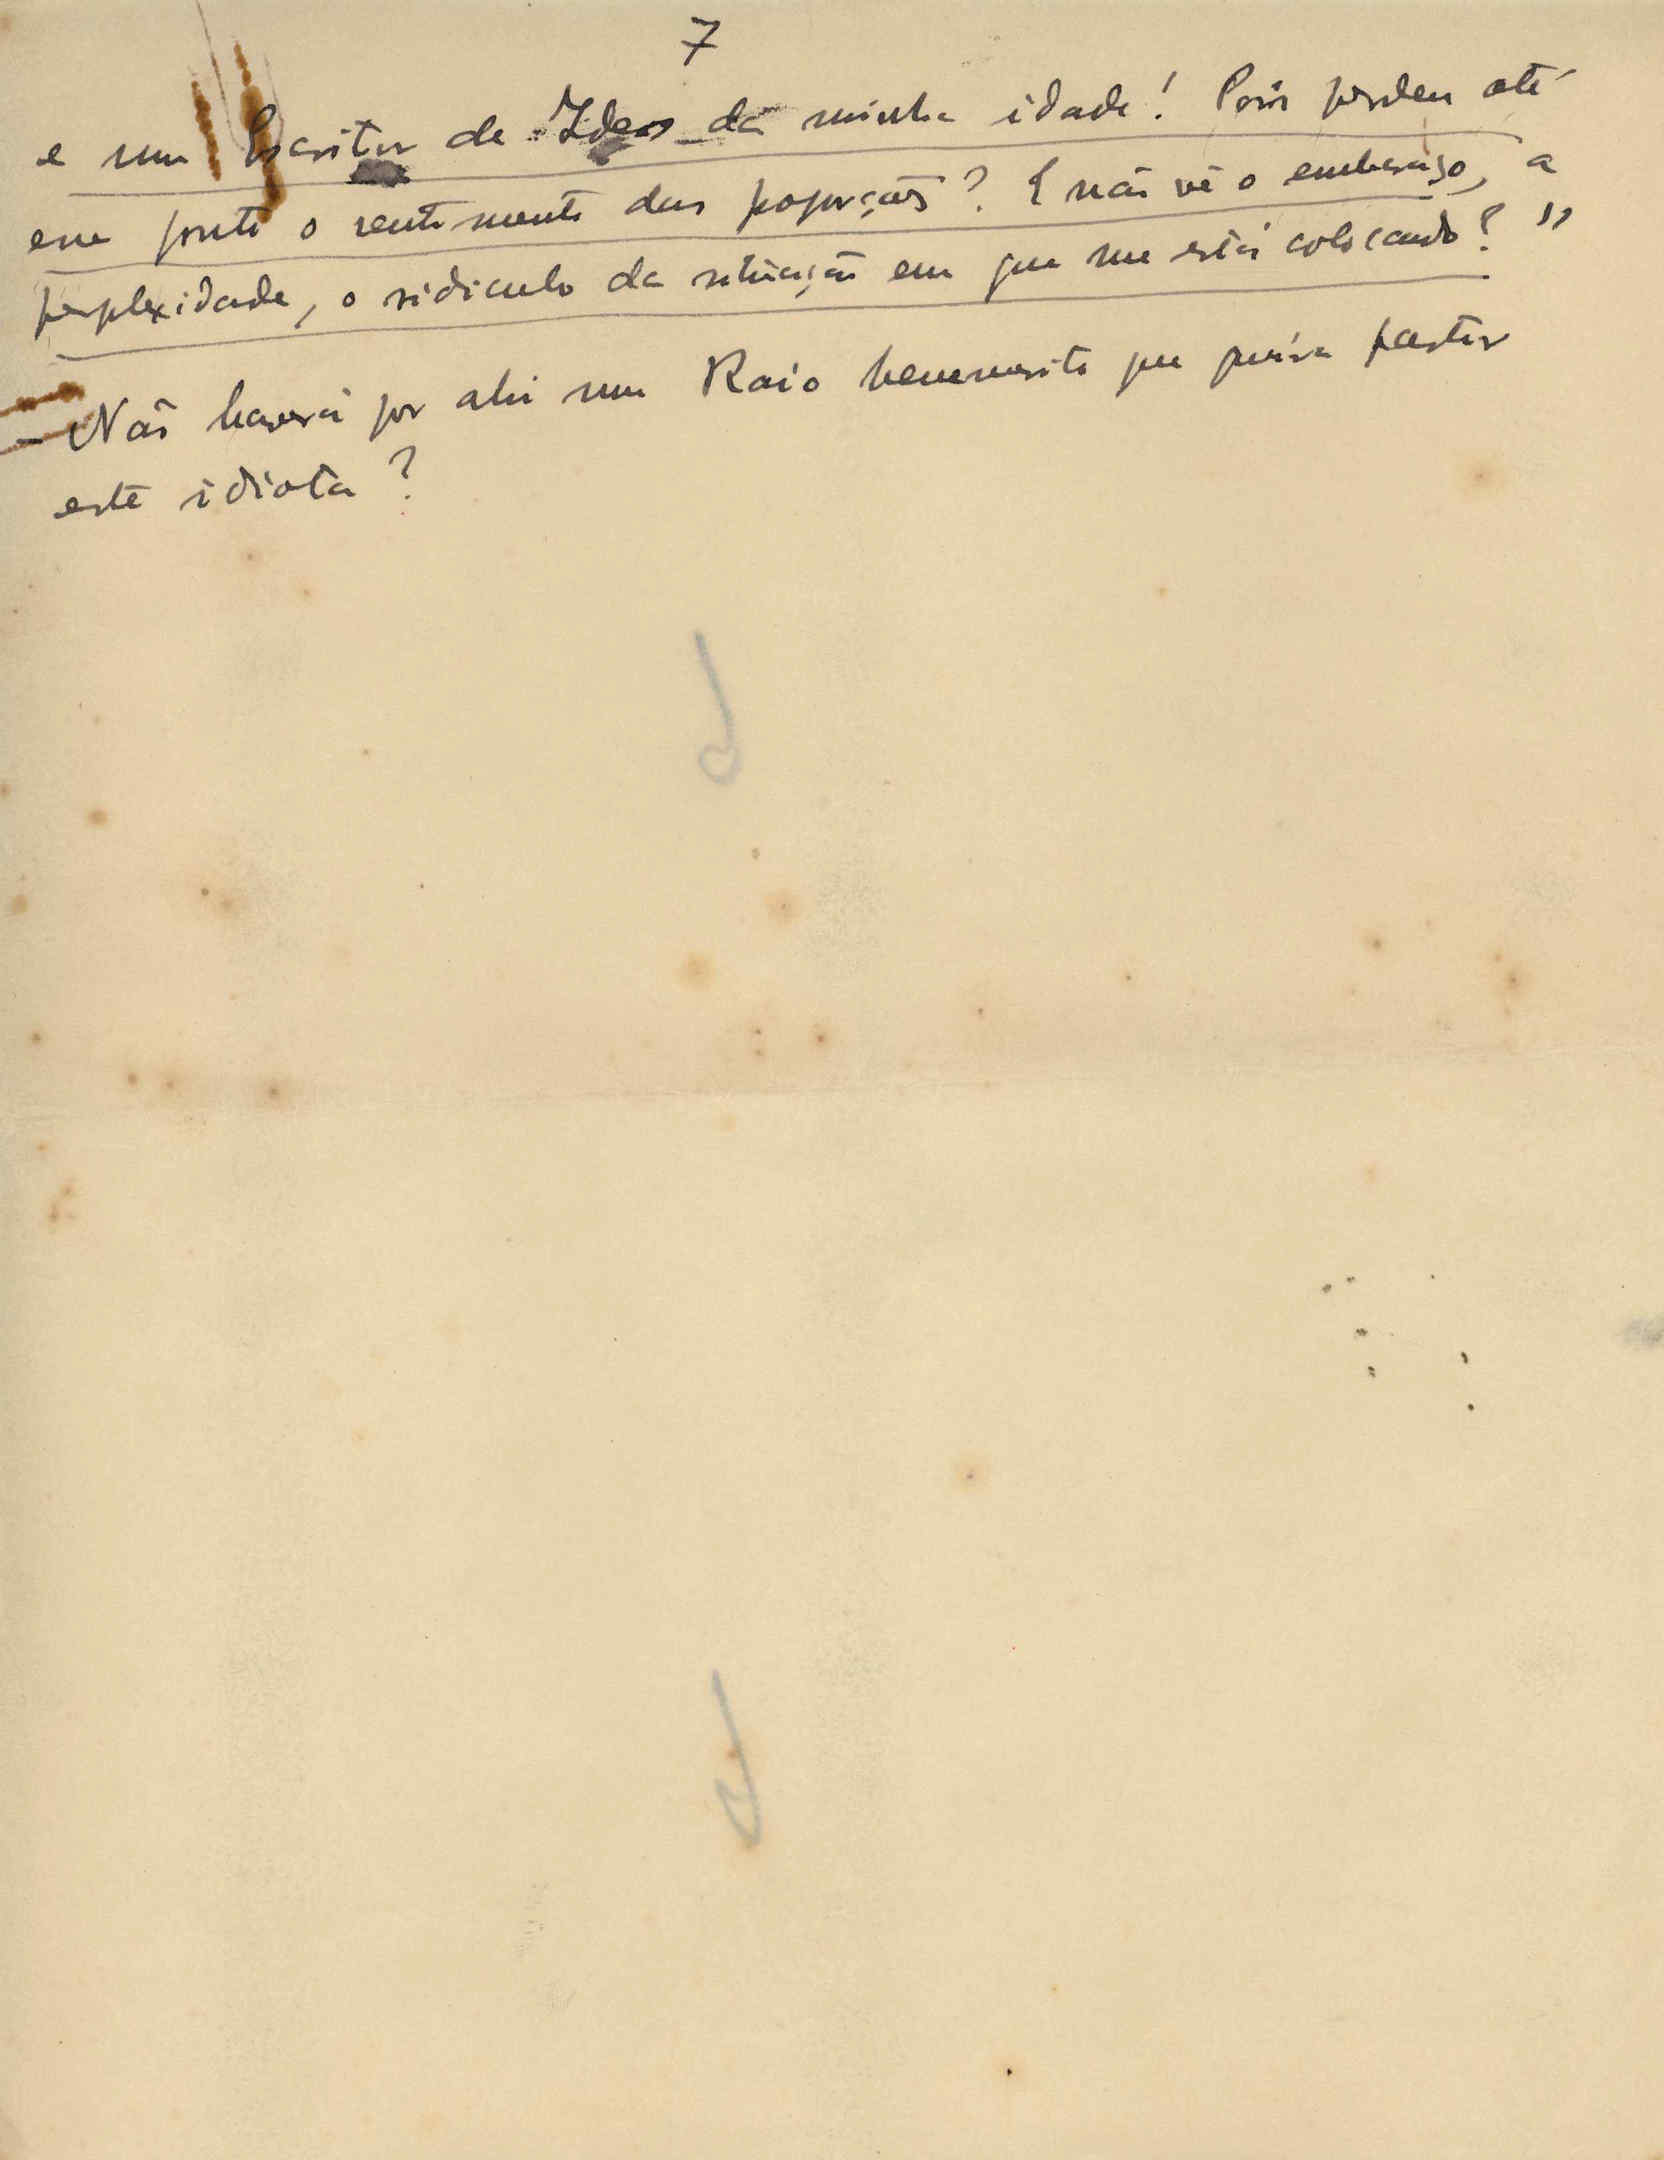 7
e um Escritor de Ideas da minha idade! Pois perdeu até
esse ponto o sentimento das proporções? E não vê o embaraço, a
perplexidade, o ridiculo da situação em que me está colocando?"
- Não haverá por ahi um Raio benemerito que queira partir
este idiota?